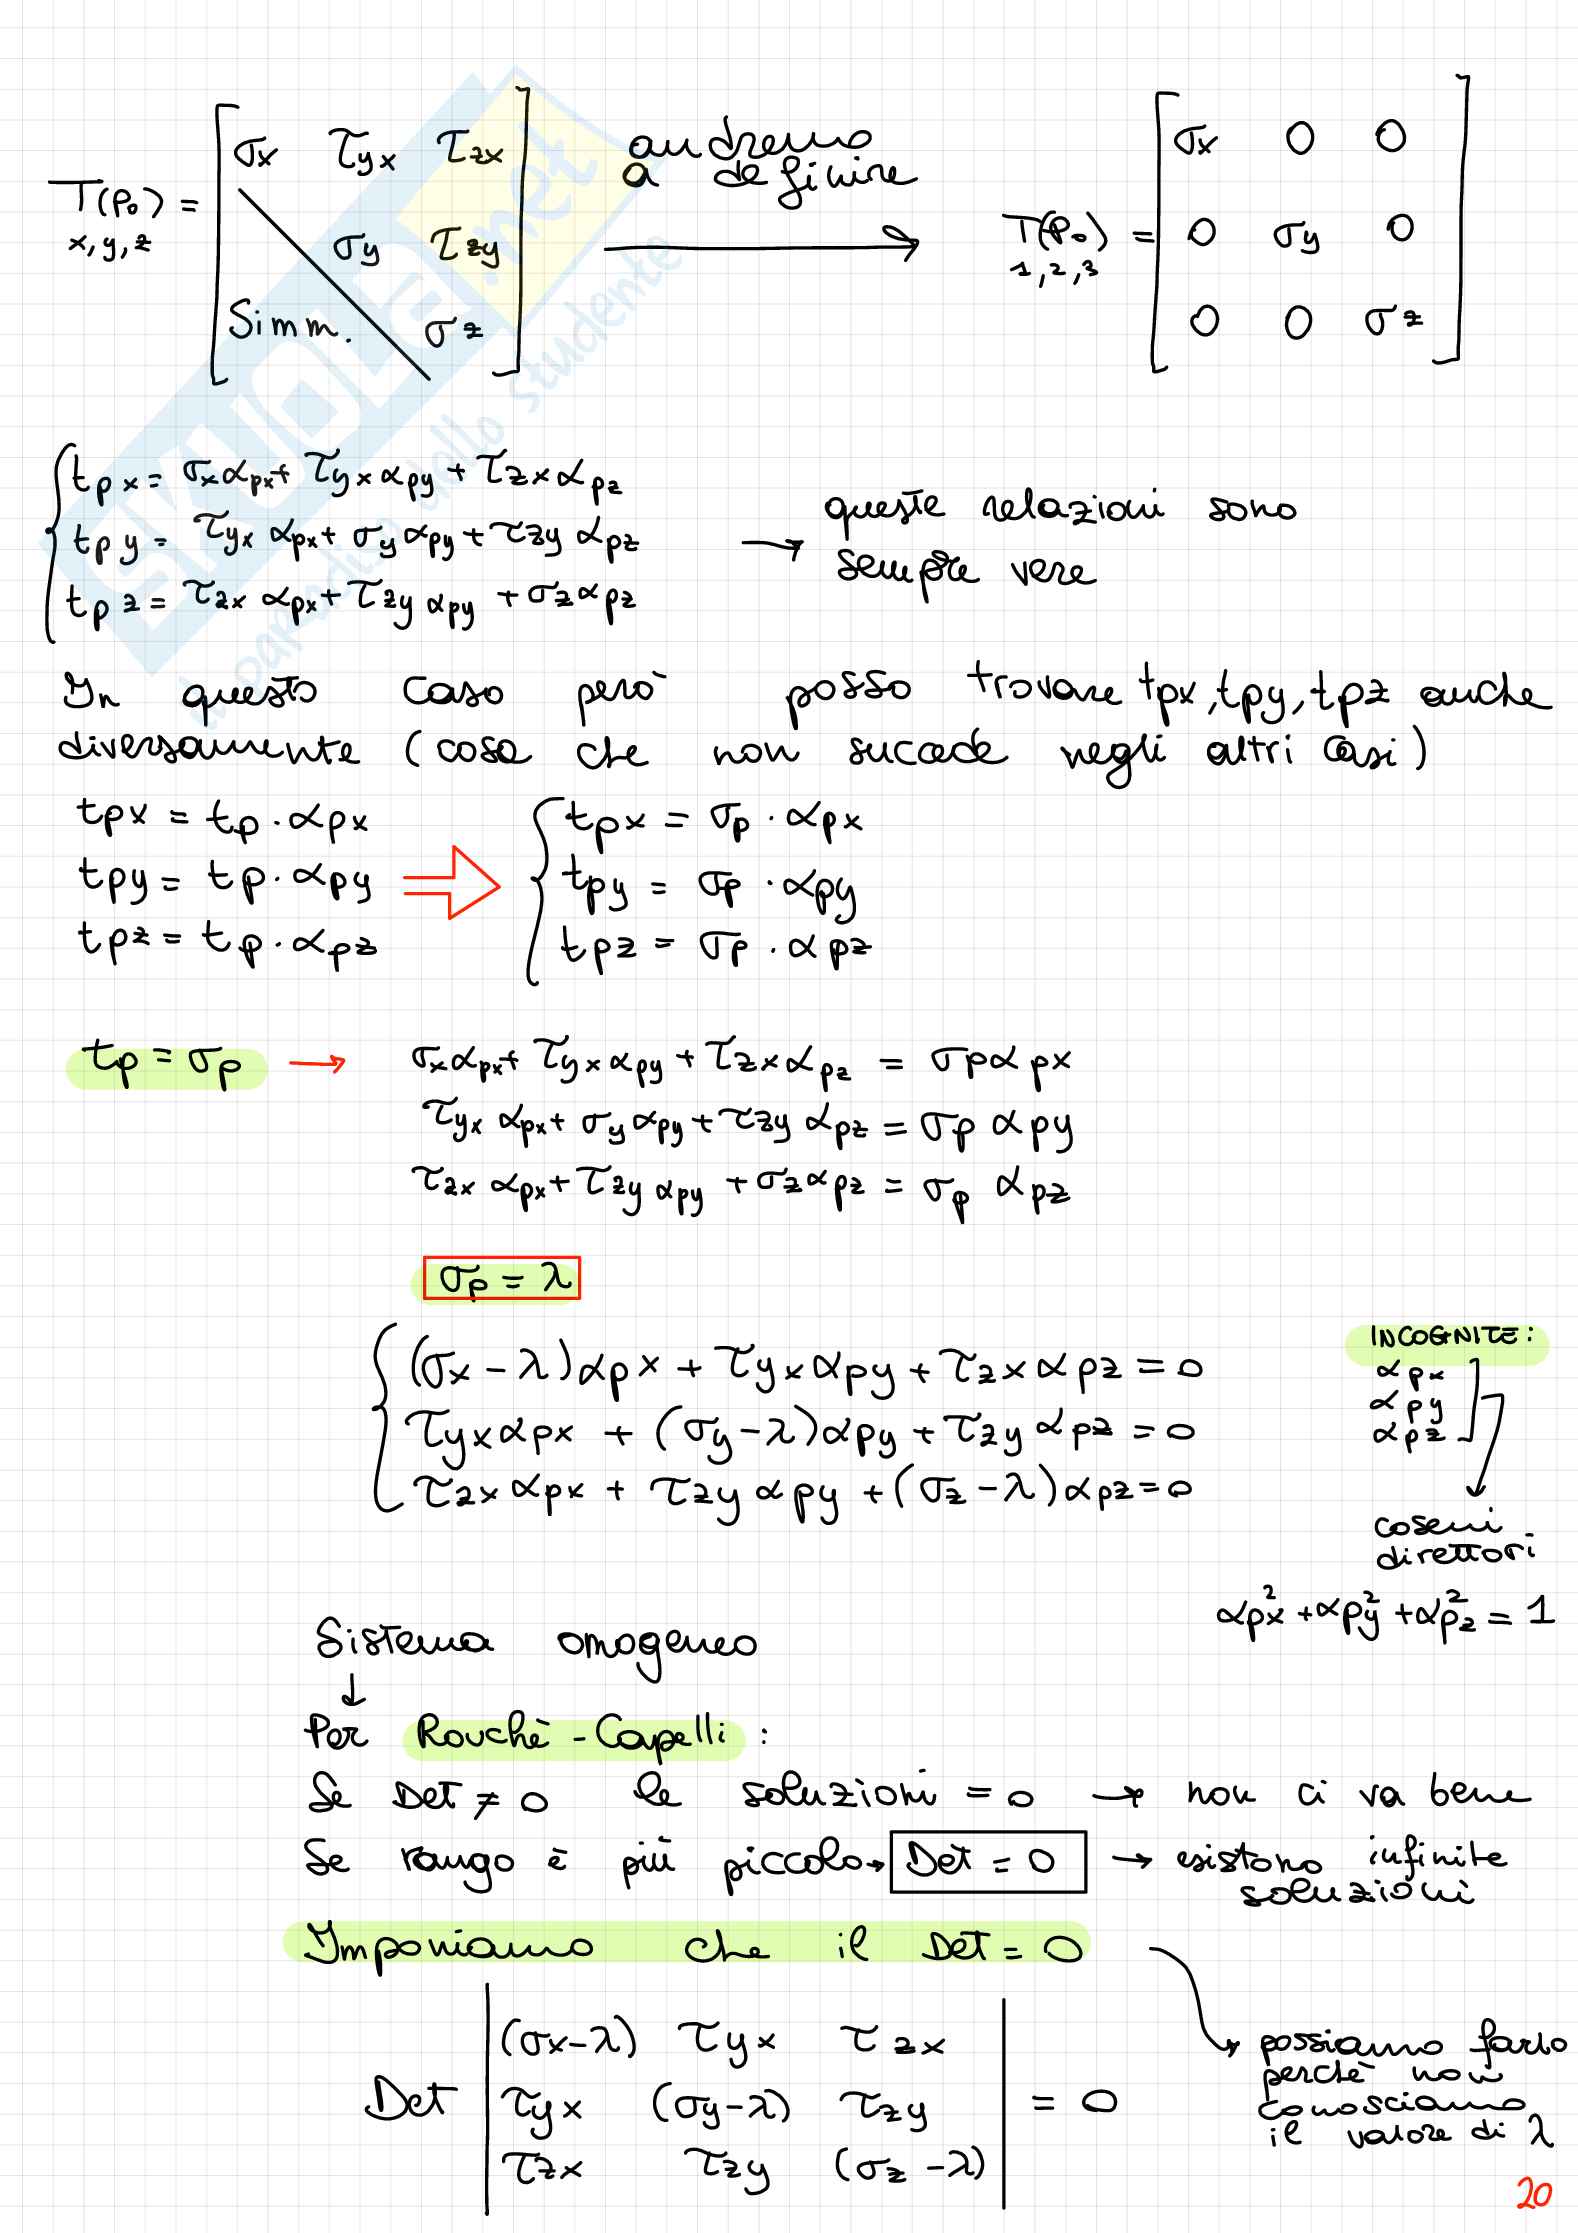 T(P₀) x,y,z = [ σx τyx τzx
σy τzy
Simm. σz ]
andremo
a definire
T(P₀) 1,2,3 = [ σx 0 0
0 σy 0
0 0 σz ]
SKUOLA.net
il paradiso dello studente
tpx = σxαpx + τyxαpy + τzxαpz
tpy = τyx αpx + σyαpy + τzy αpz
tpz = τzx αpx + τzy αpy + σzαpz
→ queste relazioni sono
sempre vere
In questo caso però posso trovare tpx, tpy, tpz anche
diversamente (cosa che non succede negli altri casi)
tpx = tp · αpx
tpy = tp · αpy
tpz = tp · αpz
⇒
tpx = σp · αpx
tpy = σp · αpy
tpz = σp · αpz
tp = σp → σxαpx + τyxαpy + τzxαpz = σpαpx
τyx αpx + σyαpy + τzy αpz = σp αpy
τzx αpx + τzy αpy + σzαpz = σp αpz
σp = λ
(σx - λ)αpx + τyxαpy + τzxαpz = 0
τyxαpx + (σy - λ)αpy + τzyαpz = 0
τzxαpx + τzyαpy + (σz - λ)αpz = 0
INCOGNITE:
αpx
αpy
αpz
coseni
direttori
αpx² + αpy² + αpz² = 1
Sistema omogeneo
↓
Per Rouchè - Capelli :
Se Det ≠ 0 le soluzioni = 0 → non ci va bene
Se rango è più piccolo → Det = 0 → esistono infinite
soluzioni
Imponiamo che il Det = 0
Det | (σx-λ) τyx τzx
τyx (σy-λ) τzy
τzx τzy (σz-λ) | = 0
possiamo farlo
perchè non
conosciamo
il valore di λ
20